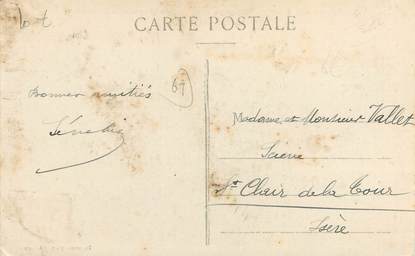 CARTE POSTALE
Bonnes amitiés
69
Madame et Monsieur Vallet
Scierie
St Clair de la Tour
Isère